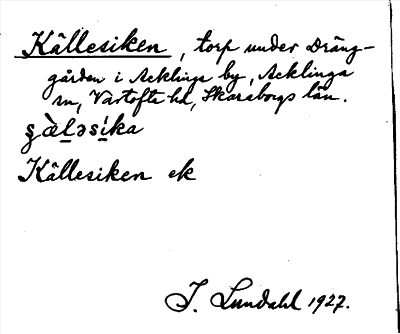 Källesiken, torp under Dräng-
gården i Acklinga by, Acklinga
sn, Vartofta hd, Skaraborgs län.
ʂæ̀ləsíka
Källesiken ek
I. Lundahl 1927.